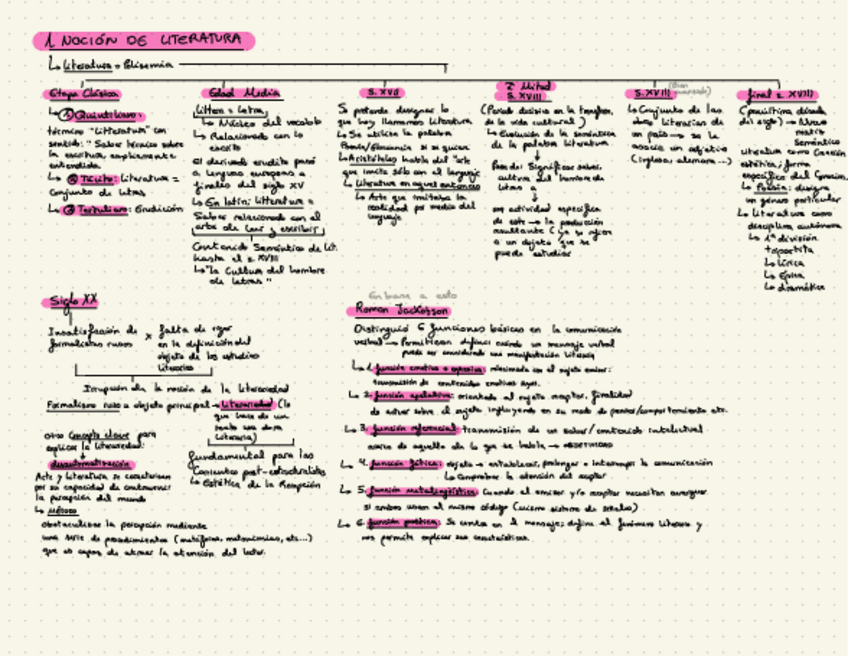 1. NOCIÓN DE LITERATURA
Literatura = Polisemia
Etapa Clásica
① Quintiliano:
término "Litteratura" con
sentido: "Saber técnico sobre
la escritura, ampliamente
entendida.
② Tácito: Literatura =
Conjunto de letras
③ Tertuliano: Erudición
Edad Media
Littera = Letra
Núcleo del vocablo
Relacionado con lo
escrito
El derivado erudito pasó
a lenguas europeas a
finales del siglo XV
En latín: litteratura =
Saber relacionado con el
arte de leer y escribir
Contenido Semántico de lit.
hasta el s. XVIII
"la Cultura del hombre
de letras"
S. XVII
Se pretende designar lo
que hoy llamamos literatura
Se utiliza la palabra
Poesía/Elocuencia si se quiere
Aristóteles habla del "arte
que imita sólo con el lenguaje
Literatura en aquel entonces
Arte que imitaba la
realidad por medio del
lenguaje
2ª Mitad
S. XVIII
(Período decisivo en la
de la vida cultural)
Evolución de la semántica
de la palabra literatura
Pasa de: Significar saber,
cultura del hombre de
letras a
una actividad específica
de este → la producción
resultante (ya se refiere
a un objeto que se
puede estudiar
S. XVIII
Conjunto de las
obras literarias de
un país → se le
asocia un adjetivo
(inglesa, alemana...)
final s. XVIII
(penúltima década
del siglo) → Nuevo
matiz
Semántico
literatura como Creación
estética; forma
específica del Conocim.
Poesía: designa
un género particular
Literatura como
disciplina autónoma
1ª división
tripartita
Lírica
Épica
dramática
Siglo XX
Insatisfacción de
formalistas rusos
x falta de rigor
en la definición del
objeto de los estudios
literarios
Irrupción de la noción de la literariedad
Formalismo ruso → objeto principal → Literariedad (lo
que hace de un
texto una obra
literaria)
Otro Concepto clave para
explicar la literariedad:
desautomatización
Arte y literatura se caracterizan
por su capacidad de
la percepción del mundo
Método
obstaculizar la percepción mediante
una serie de procedimientos (metáforas, metonimias, etc...)
que es capaz de atraer la atención del lector.
fundamental para las
Corrientes post-estructuralistas
Estética de la Recepción
En base a esto
Roman Jackobson
Distinguió 6 funciones básicas en la comunicación
verbal → Permitieron definir cuándo un mensaje verbal
puede ser considerado una manifestación literaria
1. función emotiva o expresiva: relacionada con el sujeto emisor:
transmisión de contenidos emotivos suyos.
2. función apelativa: orientada al sujeto receptor, finalidad
de actuar sobre el sujeto influyendo en su modo de pensar/comportamiento etc.
3. función referencial: transmisión de un saber/contenido intelectual
acerca de aquello de lo que se habla → OBJETIVIDAD
4. función fática: objeto → establecer, prolongar o interrumpir la comunicación
Comprobar la atención del receptor
5. función metalingüística: Cuando el emisor y/o receptor necesitan averiguar
si ambos usan el mismo código (mismo sistema de señales)
6. función poética: Se centra en el mensaje; define el fenómeno literario y
nos permite explicar sus características.